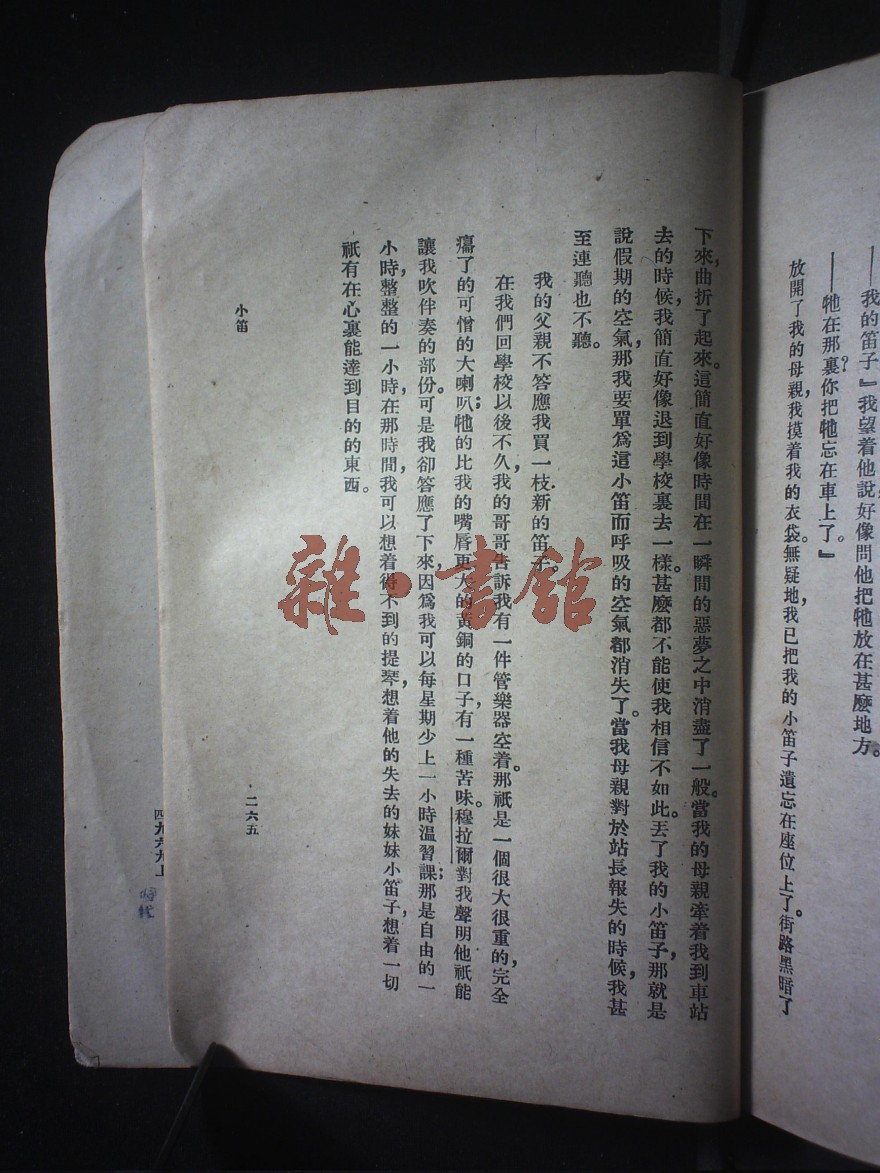 ——我的笛子』我望着他說，好像問他把牠放在甚麽地方。
——牠在那裏？你把牠忘在車上了。』
放開了我的母親，我摸着我的衣袋。無疑地，我已把我的小笛子遺忘在座位上了。街路黑暗了
下來，曲折了起來。這簡直好像時間在一瞬間的惡夢之中消盡了一般。當我的母親牽着我到車站
去的時候，我簡直好像退到學校裏去一樣。甚麽都不能使我相信不如此。丟了我的小笛子，那就是
說假期的空氣，那我要單爲這小笛而呼吸的空氣都消失了。當我母親對於站長報失的時候，我甚
至連聽也不聽。
我的父親不答應我買一枝新的笛子。
在我們回學校以後不久，我的哥哥告訴我有一件管樂器空着。那祇是一個很大很重的，完全
癟了的可憎的大喇叭；牠的比我的嘴唇更大的黃銅的口子，有一種苦味。穆拉爾對我聲明他祇能
讓我吹伴奏的部份。可是我卻答應了下來，因爲我可以每星期少上一小時溫習課；那是自由的一
小時，整整的一小時，在那時間，我可以想着得不到的提琴，想着他的失去的妹妹小笛子，想着一切
祇有在心裏能達到目的的東西。
小笛
二六五
四九六九上
雜·書館